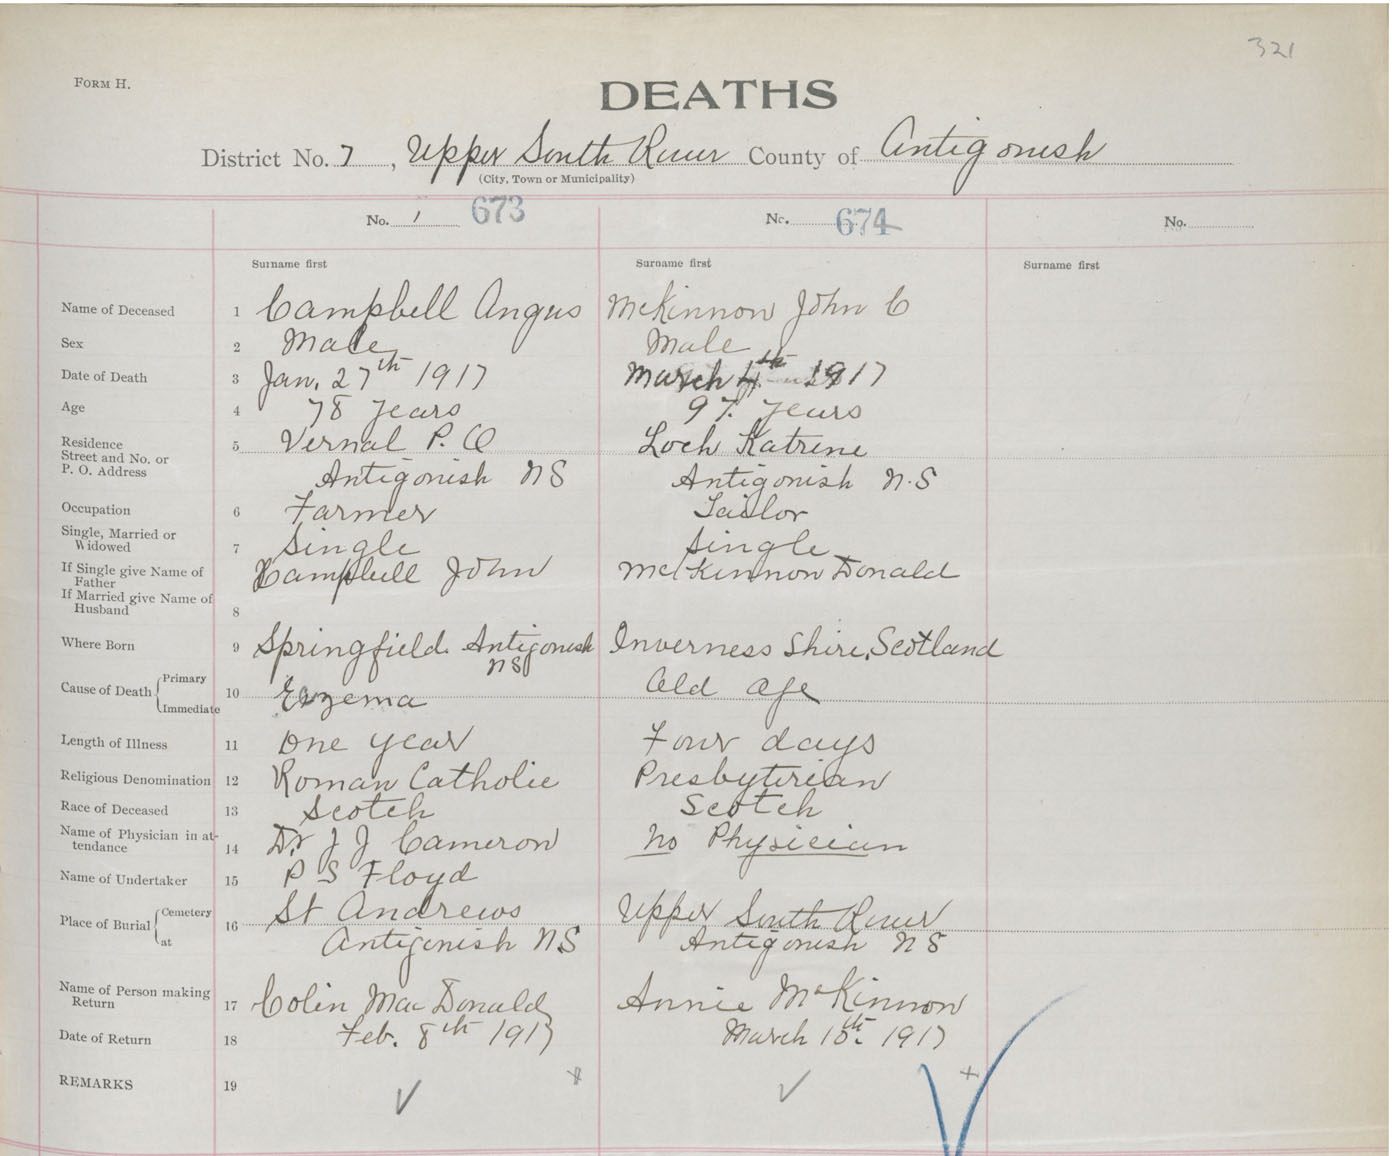 321
FORM H.
DEATHS
District No. 7, Upper South River County of Antigonish
(City, Town or Municipality)
No. 1 673
No. 674
No.
Surname first
Surname first
Surname first
Name of Deceased 1 Campbell Angus McKinnon John C
Sex 2 Male Male
Date of Death 3 Jan. 27th 1917 March 4th 1917
Age 4 78 years 97. years
Residence
Street and No. or
P. O. Address
5 Vernal P. O Loch Katrine
Antigonish NS Antigonish N.S
Occupation 6 Farmer Tailor
Single, Married or
Widowed
7 Single Single
If Single give Name of
Father
Campbell John McKinnon Donald
If Married give Name of
Husband
8
Where Born 9 Springfield Antigonish Inverness Shire, Scotland
NS
Cause of Death { Primary
Immediate
10 Eczema Old age
Length of Illness 11 One year Four days
Religious Denomination 12 Roman Catholic Presbyterian
Race of Deceased 13 Scotch Scotch
Name of Physician in at-
tendance
14 Dr J J Cameron No Physician
Name of Undertaker 15 P S Floyd
Place of Burial { Cemetery
at
16 St Andrews Upper South River
Antigonish NS Antigonish NS
Name of Person making
Return
17 Colin MacDonald Annie McKinnon
Date of Return 18 Feb. 8th 1917 March 10th. 1917
REMARKS 19